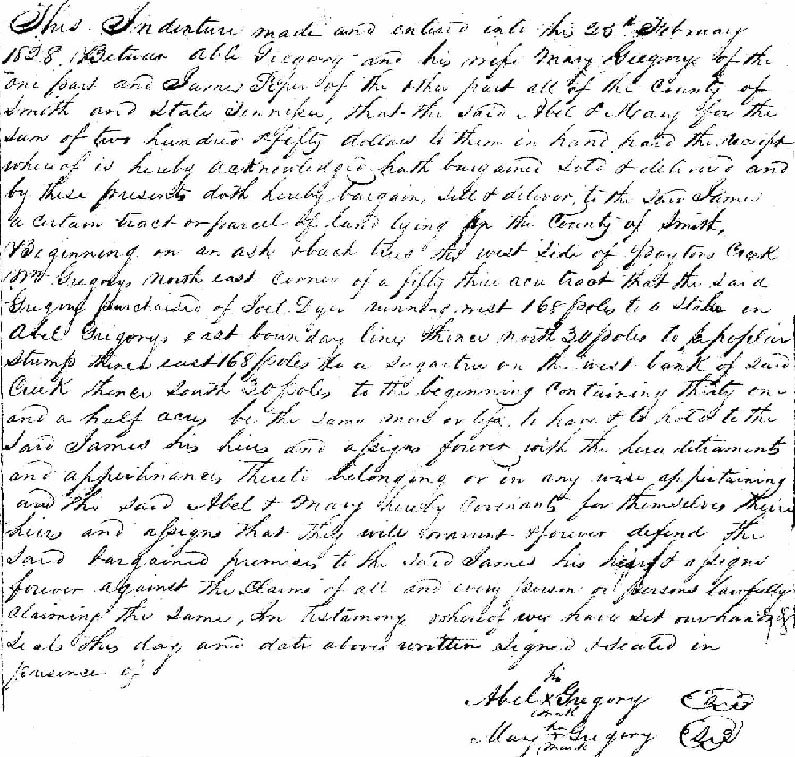 This Indenture made and entered into this 28th February
1828. Between Able Gregory and his wife Mary Gregory of the
one part and James Piper of the other part all of the County of
Smith and State Tennessee, that the said Abel & Mary for the
sum of two hundred & fifty dollars to them in hand paid the receipt
whereof is hereby acknowledged hath bargained sold & delivered and
by these presents doth hereby bargain, sell & deliver, to the said James
a certain tract or parcel of land lying in the County of Smith,
Beginning on an ash & buch tree the west side of Paytons Creek
Wm Gregorys north east corner of a fifty three acre tract that the said
Gregory purchased of Joel Dyer running west 168 poles to a stake in
Abel Gregorys east boundary line, thence north 30 poles to a poplar
stump thence east 168 poles to a sugartree on the west bank of said
Creek thence south 30 poles to the beginning containing thirty one
and a half acres be the same more or less, to have & to hold to the
said James his heirs and assigns forever with the hereditraments
and appertinances thereto belonging or in any wise appertaining
and the said Abel & Mary hereby covenants for themselves their
heirs and assigns that they will warrant & forever defend the
said bargained premises to the said James his heirs & assigns
forever against the claims of all and every person or persons lawfully
claiming the same, In testimony whereof wee have set our hands &
seals this day and date above written signed & sealed in
presence of
his
Abel X Gregory (Seal)
mark
her
Mary X Gregory (Seal)
mark